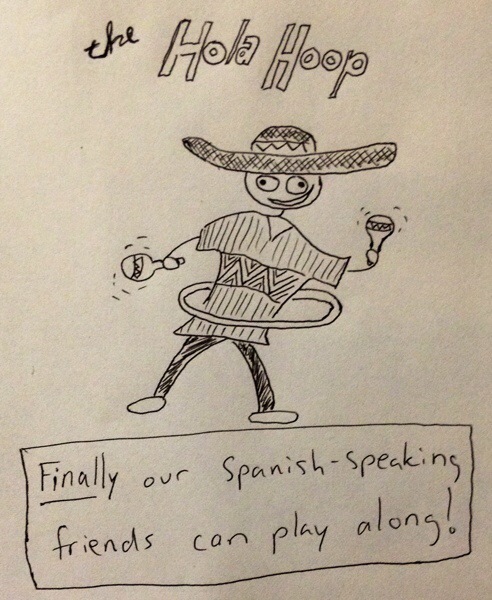 the Hola Hoop
Finally our Spanish-speaking
friends can play along!